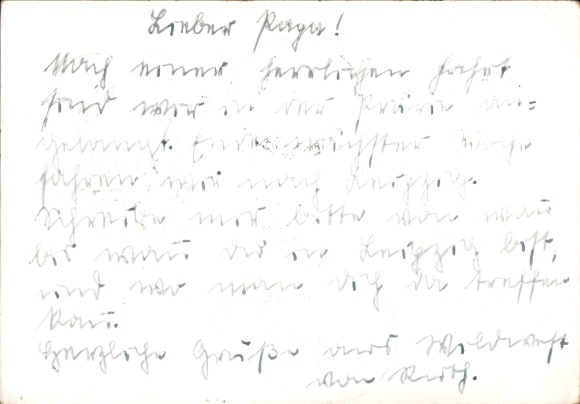 Lieber Papa!
Nach einer herrlichen Fahrt
sind wir in der Prärie an=
gelangt. Ende nächster Woche
fahren wir nach Leipzig.
Schreibe mir bitte von wañ
bis wañ du in Leipzig bist,
und wo man dich da treffen
kañ.
Herzliche Grüße aus Wildwest
von Ruth.